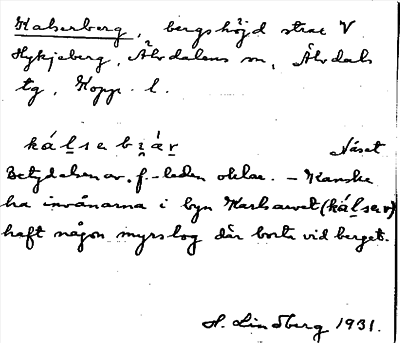 Kalserberg, bergshöjd strax V
Hykjeberg, Älvdalens sn, Älvdals
tg, Kopp. l.
kálsebr̯ár Näset
Betydelsen av f.-leden oklar. – Kanske
ha invånarna i byn Karlsarvet (kálsery)
haft någon myrslog där borta vid berget.
H. Lindberg 1931.